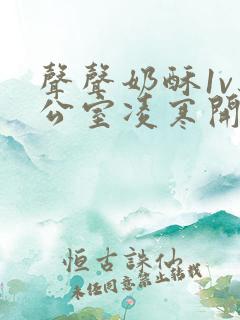 聲聲奶酥1v
公室凌寒開
恒古誅仙
未经同意禁止转载